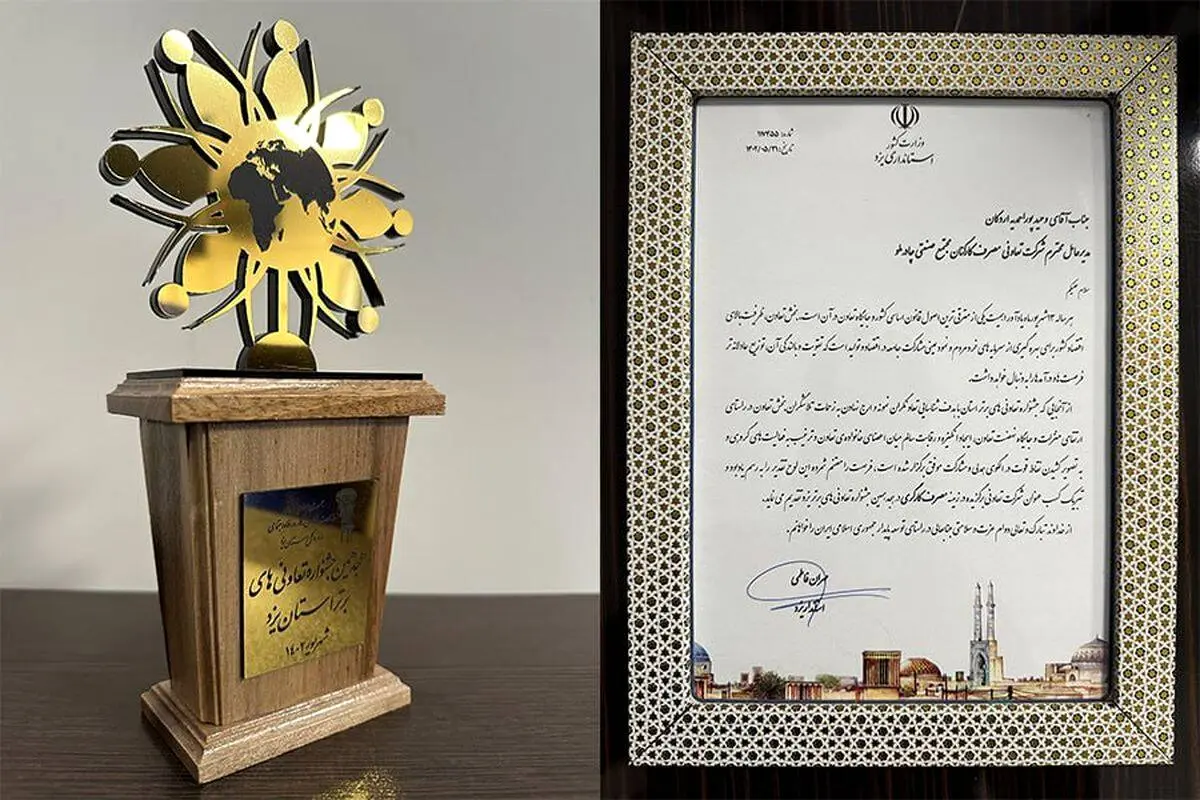 هجدهمین جشنواره تعاونی های
برتر استان یزد
شهریور ۱۴۰۲
وزارت کشور
استانداری یزد
شماره: ۱۱۷۴۵۵
تاریخ: ۱۴۰۲/۰۵/۳۱
جناب آقای وحید پوراحمدیه اردکان
مدیرعامل محترم شرکت تعاونی مصرف کارکنان مجتمع صنعتی چادرملو
سلام علیکم
هر ساله ۱۳ شهریورماه یادآور اهمیت یکی از مترقی ترین اصول قانون اساسی کشور و جایگاه تعاون در آن است. بخش تعاون، ظرفیت بالای
اقتصاد کشور برای بهره گیری از سرمایه های خرد مردم و نمود عینی مشارکت جامعه در اقتصاد و تولید است که تقویت و بالندگی آن، توزیع عادلانه تر
فرصت ها و درآمدها را به دنبال خواهد داشت.
از آنجایی که جشنواره تعاونی های برتر استان با هدف شناسایی تعاونگران نمونه و ارج نهادن به زحمات تلاشگران بخش تعاون در راستای
ارتقای منزلت و جایگاه نهضت تعاون، ایجاد انگیزه و رقابت سالم میان اعضای خانواده ی تعاون و ترغیب به فعالیت های گروهی و
به تصویر کشیدن نقاط قوت در الگوی همدلی و مشارکت موفق برگزار شده است، فرصت را مغتنم شمرده این لوح تقدیر را به رسم یادبود و
تبریک کسب عنوان شرکت تعاونی برگزیده در زمینه مصرف کارگری در هجدهمین جشنواره تعاونی های برتر یزد تقدیم می نماید.
از خداوند تبارک و تعالی دوام عزت و سلامتی جنابعالی در راستای توسعه پایدار جمهوری اسلامی ایران را خواهانم.
مهران فاطمی
استاندار یزد